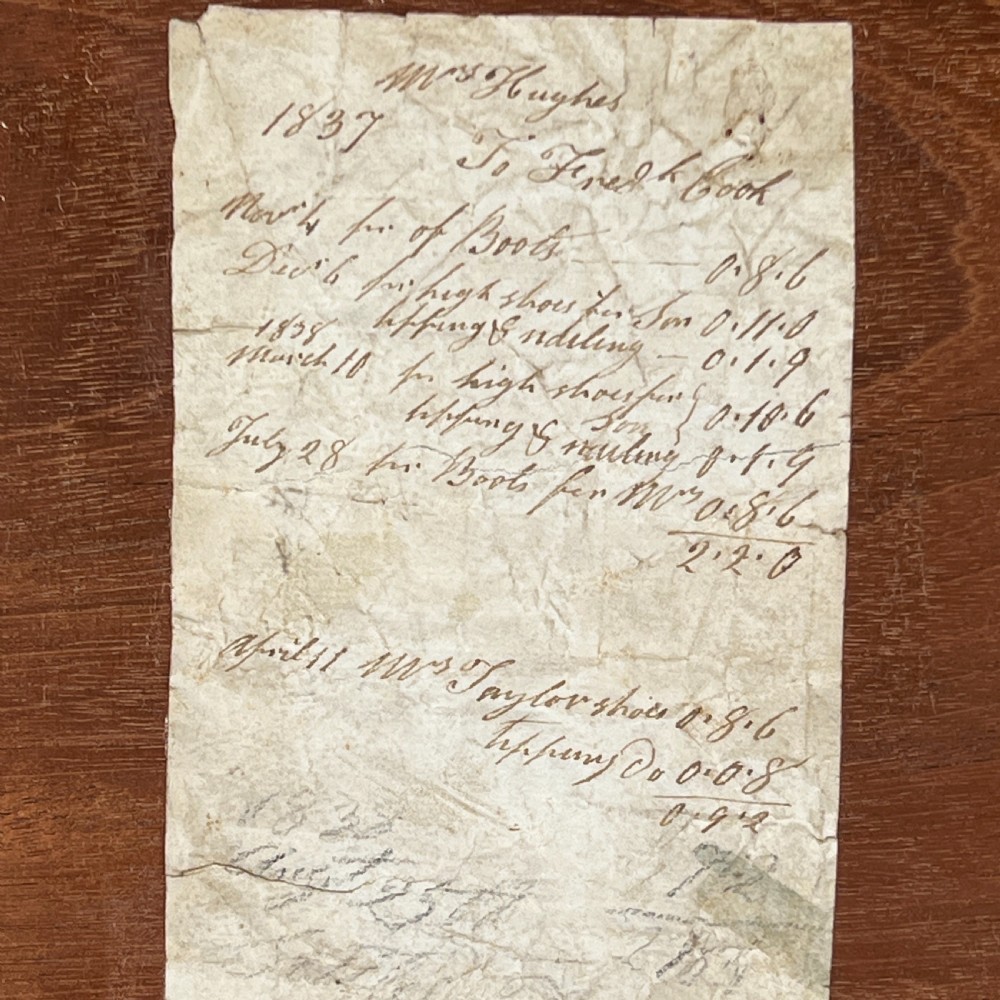 Mrs Hughes
1837
To Fredk Cook
Novr 4 pr of Boots 0.8.6
Decr 6 pr high shoes for Son 0.11.0
tipping & nailing 0.1.9
1838
March 10 pr high shoes for Son 0.10.6
tipping & nailing 0.1.9
July 28 pr Boots for Mrs 0.8.6
2.2.0
April 11 Mrs Taylor shoes 0.8.6
tipping Do 0.0.8
0.9.2